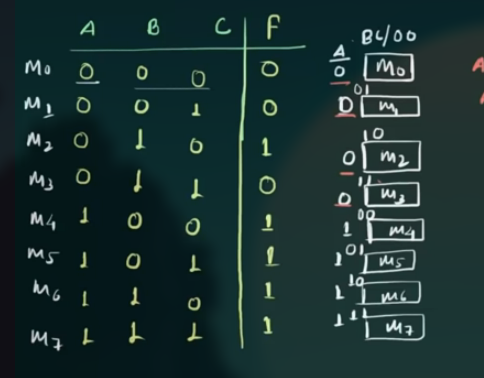 A B C F
M0 0 0 0 0
M1 0 0 1 0
M2 0 1 0 1
M3 0 1 1 0
M4 1 0 0 1
M5 1 0 1 1
M6 1 1 0 1
M7 1 1 1 1
A BC/00
0 M0
0 01 m1
0 10 m2
0 11 m3
1 00 m4
1 01 m5
1 10 m6
1 11 m7